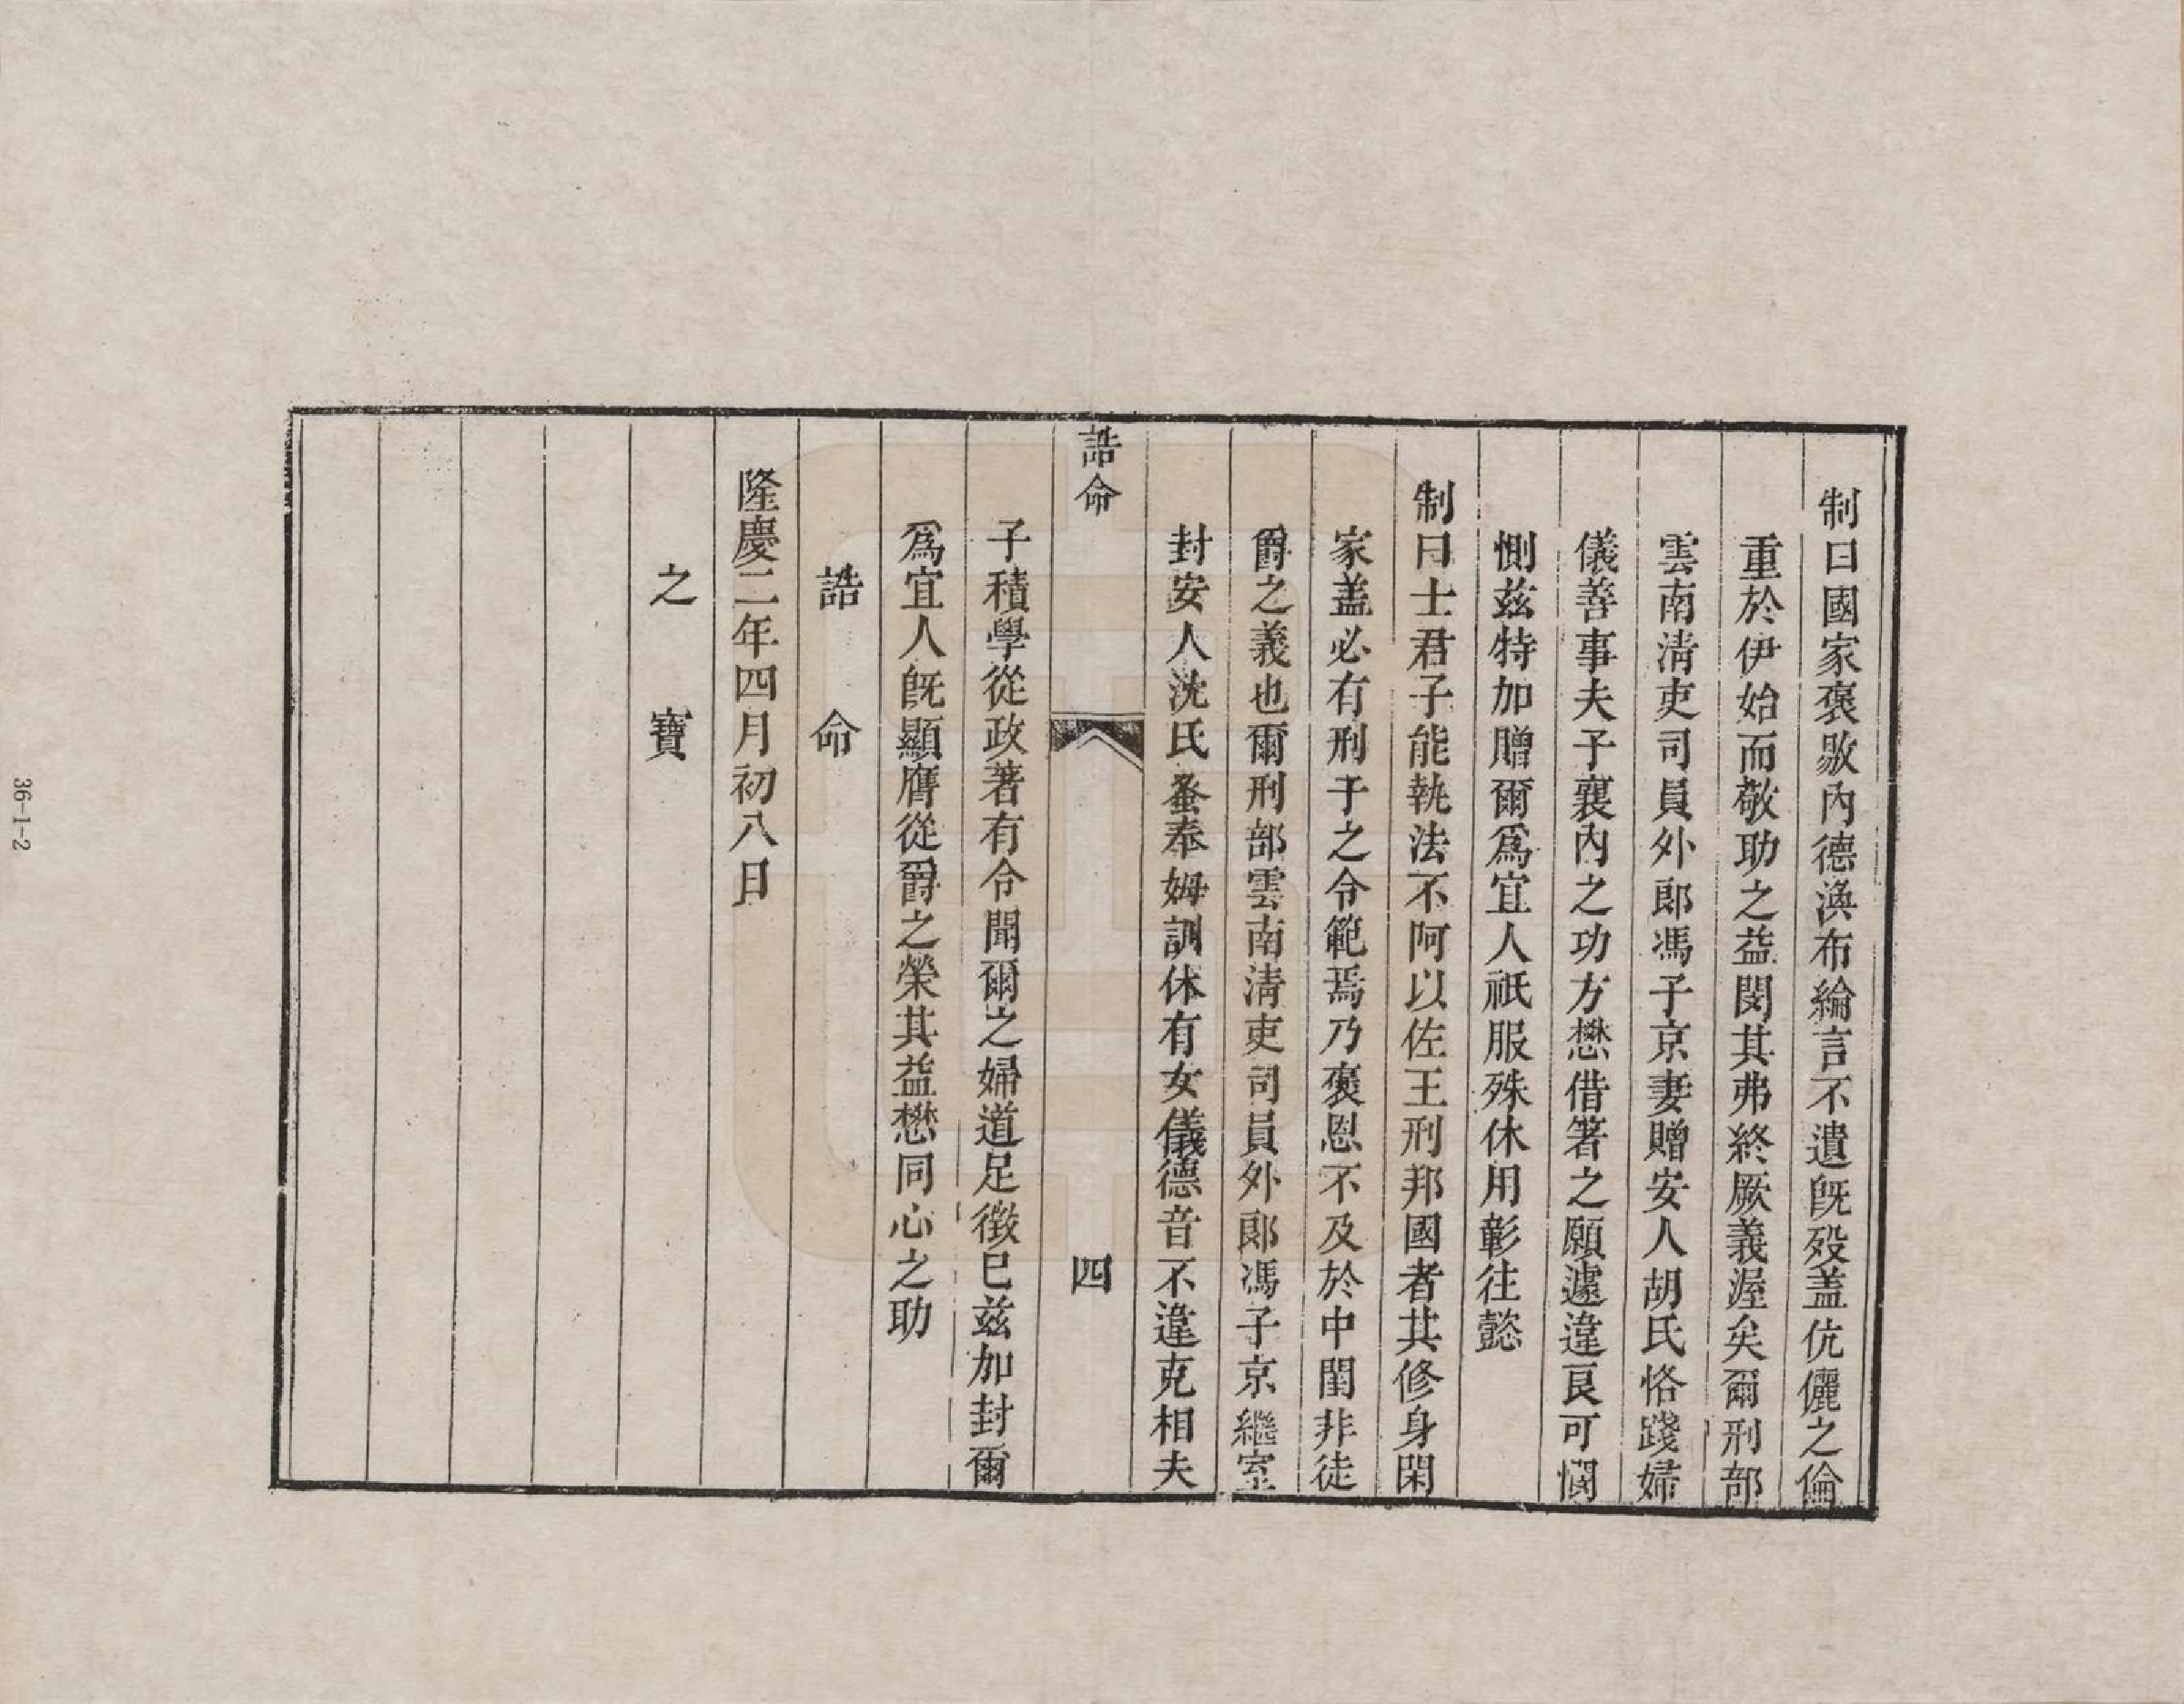 制曰國家褒敭內德渙布綸言不遺旣歿盖伉儷之倫
重於伊始而敬助之益閔其弗終厥義渥矣爾刑部
雲南淸吏司員外郎馮子京妻贈安人胡氏恪踐婦
儀善事夫子襄內之功方懋借箸之願遽違良可憫
惻兹特加贈爾爲宜人祇服殊休用彰往懿
制曰士君子能執法不阿以佐王刑邦國者其修身閑
家盖必有刑于之令範焉乃褒恩不及於中閨非徒
爵之義也爾刑部雲南淸吏司員外郎馮子京繼室
封安人沈氏蚤奉姆訓休有女儀德音不違克相夫
誥命
四
子積學從政著有令聞爾之婦道足徵已兹加封爾
爲宜人旣顯膺從爵之榮其益懋同心之助
誥命
隆慶二年四月初八日
之寶
36-1-2